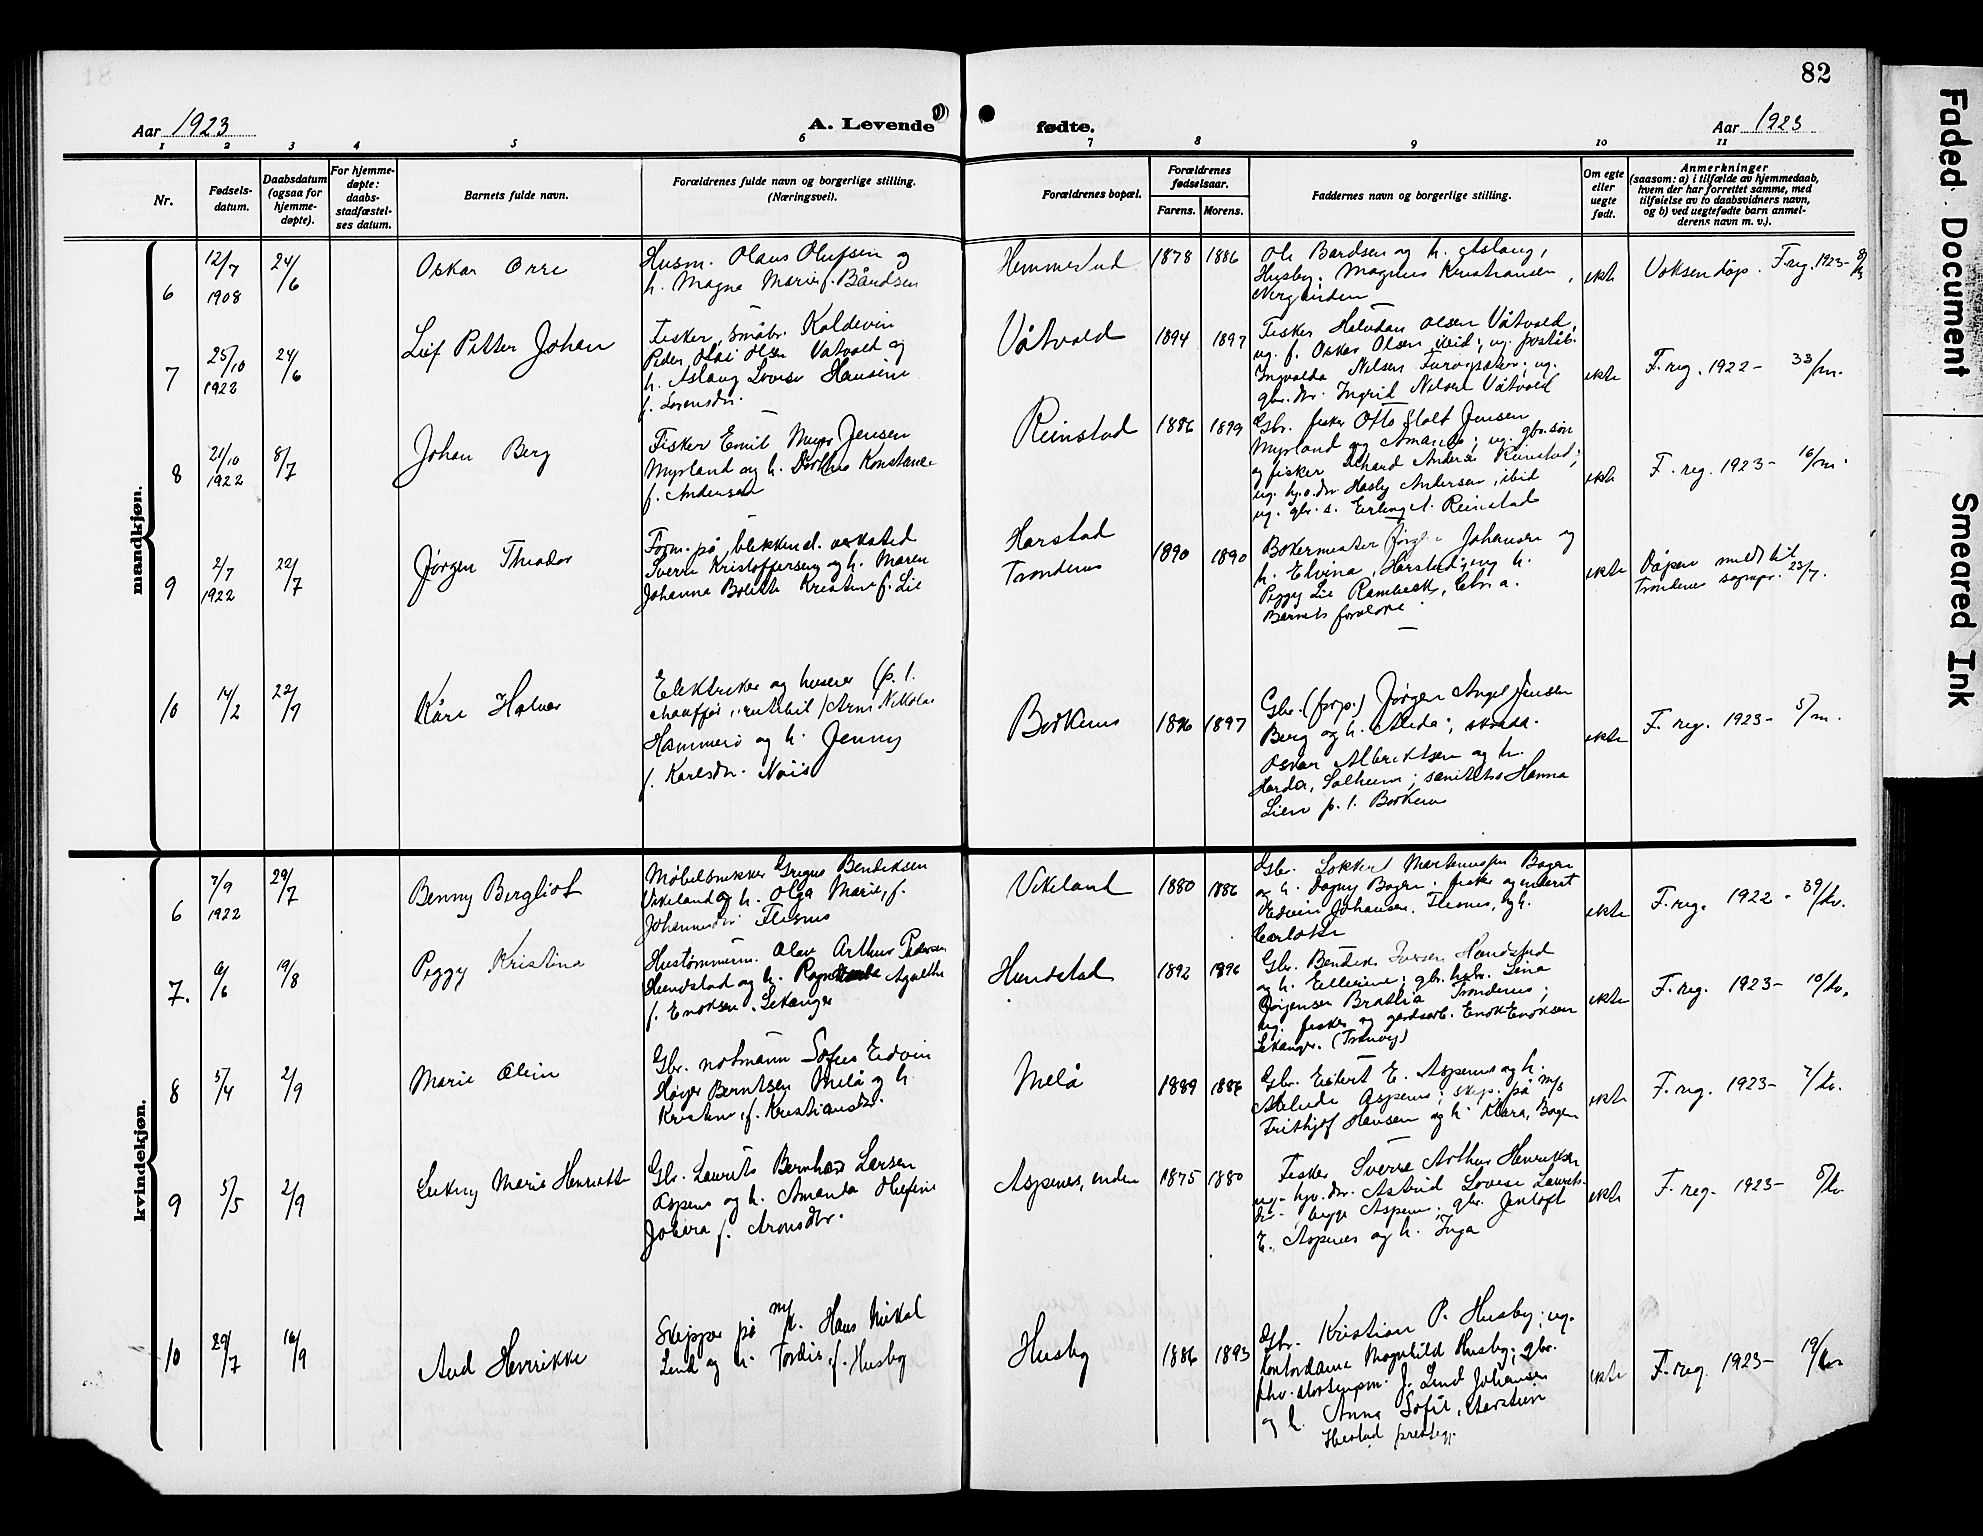 82
Aar 1923
A. Levende
fødte.
Aar 1923
1 2 3 4 5 6 7 8 9 10 11
Nr.
Fødsels-
datum.
Daabsdatum
(ogsaa for
hjemme-
døpte).
For hjemme-
døpte:
daabs-
stadfæstel-
ses datum.
Barnets fulde navn.
Forældrenes fulde navn og borgerlige stilling.
(Næringsvei).
Forældrenes bopæl.
Forældrenes
fødselsaar.
Farens. Morens.
Faddernes navn og borgerlige stilling.
Om egte
eller
uegte
født.
Anmerkninger
(saasom: a) i tilfælde av hjemmedaab,
hvem der har forrettet samme, med
tilføielse av to daabsvidners navn,
og b) ved uegtefødte barn anmel-
derens navn m. v.).
mandkjøn.
6
12/7
1908
24/6
Oskar Orre
Husm. Olaus Olufsen og
h. Magna Marie f. Bårdsen
Hemmestad
1878 1886
Ole Bardsen og h. Aslaug,
Husby; Magnus Kristiansen,
ekte
Voksendåp. F.reg. 1923-
7
25/10
1922
24/6
Leif Petter Johan
Fisker, småbr. Kaldevin
Peder Olai Olsen Vatvold og
h. Aslaug Lovise Hansine
f. Lorensdtr.
Våtvold
1894 1897
Fisker Halvdan Olsen Våtvold,
ug. f. Oskar Olsen ibid; ug.
Ingvalda Nelsen ug.
gbr.dtr. Ingrid Nelsen Våtvold
ekte
F. reg. 1922 - 33/m.
8
21/10
1922
8/7
Johan Berg
Fisker Emil Meyer Jensen
Myrland og h. Dorthea Konstanse
f. Andersen
Reinstad
1896 1899
Gbr. fisker Otto Stolt Jensen
Myrland og Amanda; ug. gbr.søn
og fisker Rikard Anders Reinstad;
ug. Hasly Andersen, ibid
ug. gbr. s. Erling Reinstad
ekte
F. reg. 1923- 16/m.
9
2/7
1922
22/7
Jørgen Theodor
Form. på blikkensl. verksted
Sverre Kristoffersen og h. Maren
Johanna Bolette Kristine f. Lie
Harstad
Trondenes
1890 1890
Bakermester Jørgen Johansen og
h. Elvina, Harstad; ug h.
Peggy Lie Rambeck,
Barnets forældre
ekte
Dåpen meldt til
Trondenes sogepr. 23/7.
10
14/2
22/7
Kåre Halvar
Elektriker og huseier (p. t.
chauffør Arne Nikolai
Hammerø og h. Jenny
f. Karlsdtr. Nois
Borkenes
1896 1897
Gbr. (forp.) Jørgen Angel Jensen
Berg og h. Alida;
Osvar Albriktsen og h.
Harda, Solheim; Hanna
Lien p. t. Borkenes
ekte
F. reg. 1923- 5/m.
kvindekjøn.
6
7/9
1922
29/7
Benny Bergliot
Møbelsnekker Gregus Bendiksen
Vikeland og h. Olga Marie, f.
Johannesdtr Flesnes
Vikeland
1880 1886
Gbr. Lokkert Martinussen Bogen
og h. Dagny Bogen; fisker
Edvin Johansen, Flesnes, og h.
ekte
F. reg. 1922 - 39/kv.
7.
6/6
19/8
Peggy Kristina
Hustømmerm. Olav Arthur Pedersen
Hundstad og h. Agathe
f. Enoksen, Lekanger
Hundstad
1892 1896
Gbr. Bendik Iversen Hundstad
og h. Ellerine; gbr. Lina
Jørgensen Brattlia Trondenes;
ug. fisker og gårdsarb. Enok Enoksen
Lekanger. (Tranøy)
ekte
F. reg. 1923- 10/kv.
8
5/4
2/9
Marie Olein
Gbr. notmann Sofus Edvin
Høyer Berntsen Melå og h.
Kristine, f. Kristiansdtr.
Melå
1889 1886
Gbr. Eilert E. Aspenes og h.
Aspenes; skip. på m/s
Frithjof Hansen og h. Klara, Bogen
ekte
F. reg. 1923- 7/kv.
9
5/5
2/9
Marie Henriette
Gbr. Laurits Bernhard Larsen
Aspenes og h. Amanda Olefine
Johera f. Aronsdtr.
Aspenes, indre
1875 1880
Fisker Sverre Arthur Henriksen
ug. Astrid Lovise Laurits-
dtr., begge Aspenes; gbr. Jentoft
E. Aspenes og h. Inga
ekte
F. reg. 1923- 8/kv
10
29/7
16/9
Aud Henrikke
Skipper på m/k. Hans Mikal
Lind og h. Tordis, f. Husby
Husby
1886 1893
Gbr. Kristian P. Husby; ug.
kontordame Magnhild Husby; gbr.
J. Lind Johansen
og h. Anna Sofie,
Hustad prestegj.
ekte
F. reg. 1923- 19/kv
Faded Document
Smeared Ink